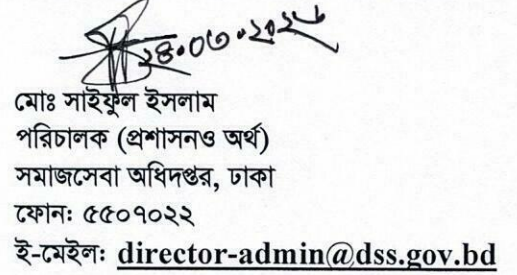 ২৪.০৩.২০২৬
মোঃ সাইফুল ইসলাম
পরিচালক (প্রশাসনও অর্থ)
সমাজসেবা অধিদপ্তর, ঢাকা
ফোনঃ ৫৫০৭০২২
ই-মেইলঃ director-admin@dss.gov.bd